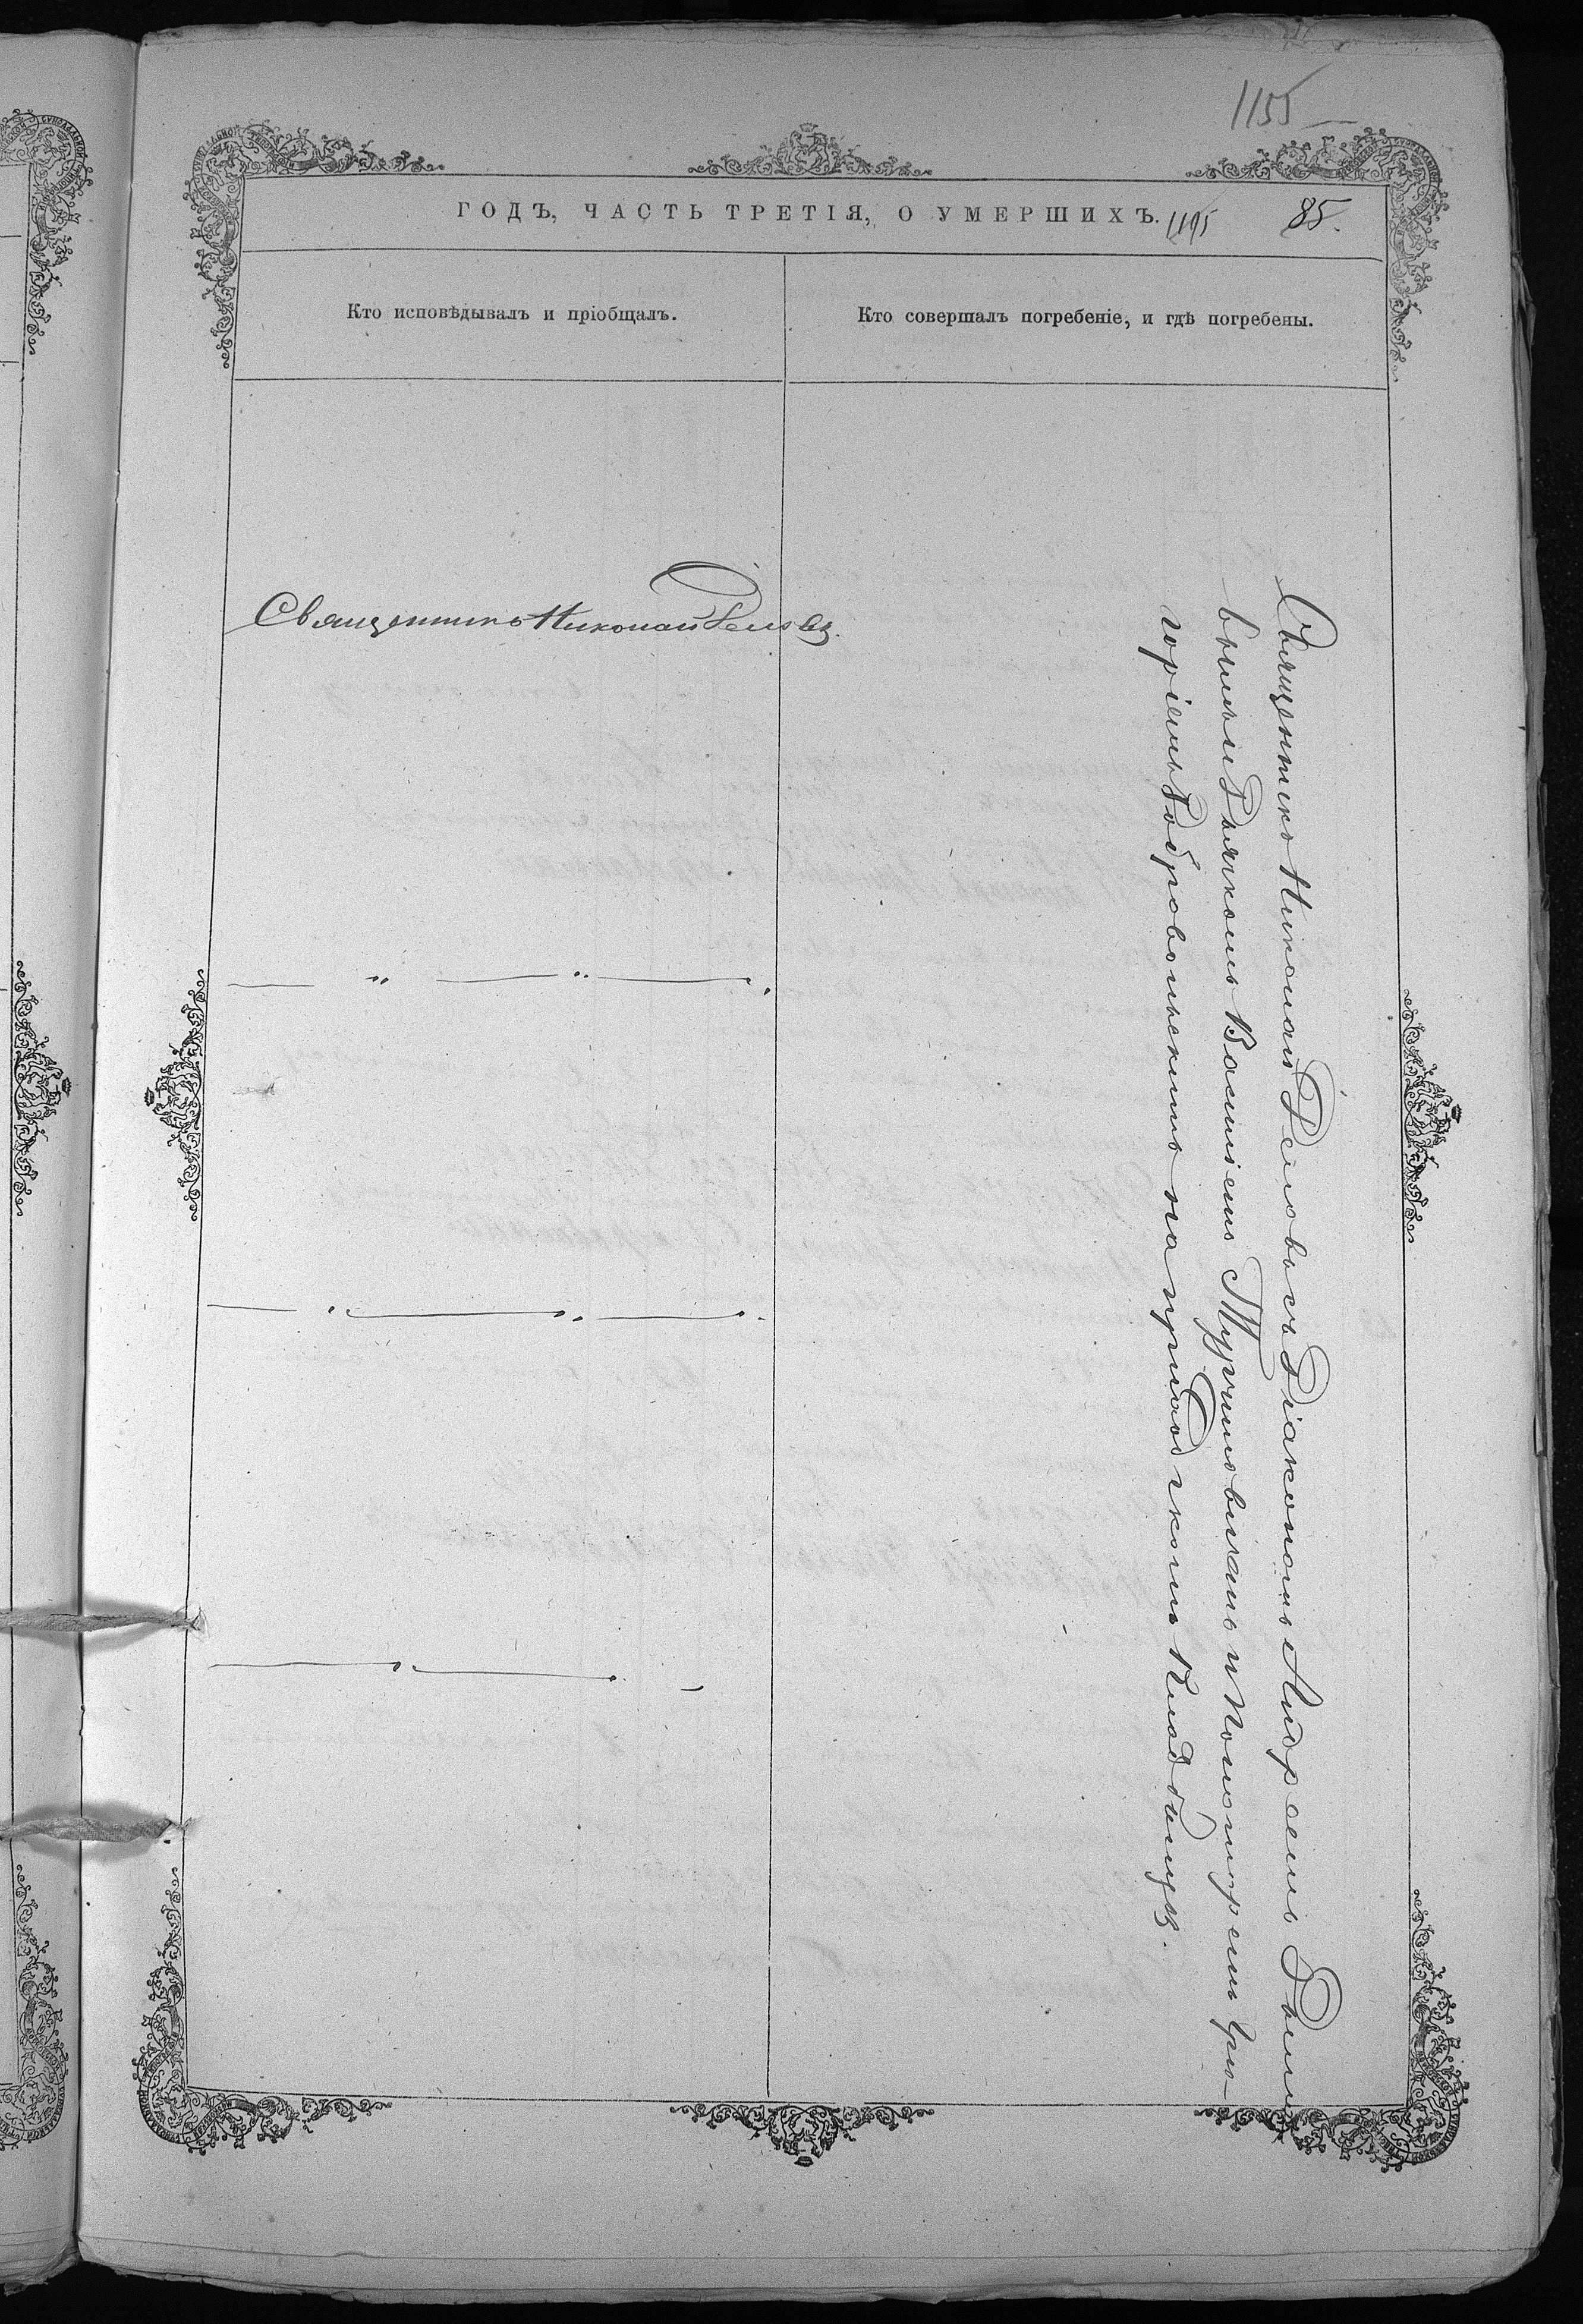 1155
ГОДЪ, ЧАСТЬ ТРЕТІЯ, О УМЕРШИХЪ. 85.
Кто исповѣдывалъ и пріобщалъ.
Кто совершалъ погребеніе, и гдѣ погребены.
Священникъ Николай
Священникъ Николай съ Діакономъ Андреемъ
вымъ и Дьячкомъ Василіемъ и Пономаремъ Гри-
горіемъ Добровольскимъ на приходскомъ кладбищѣ.